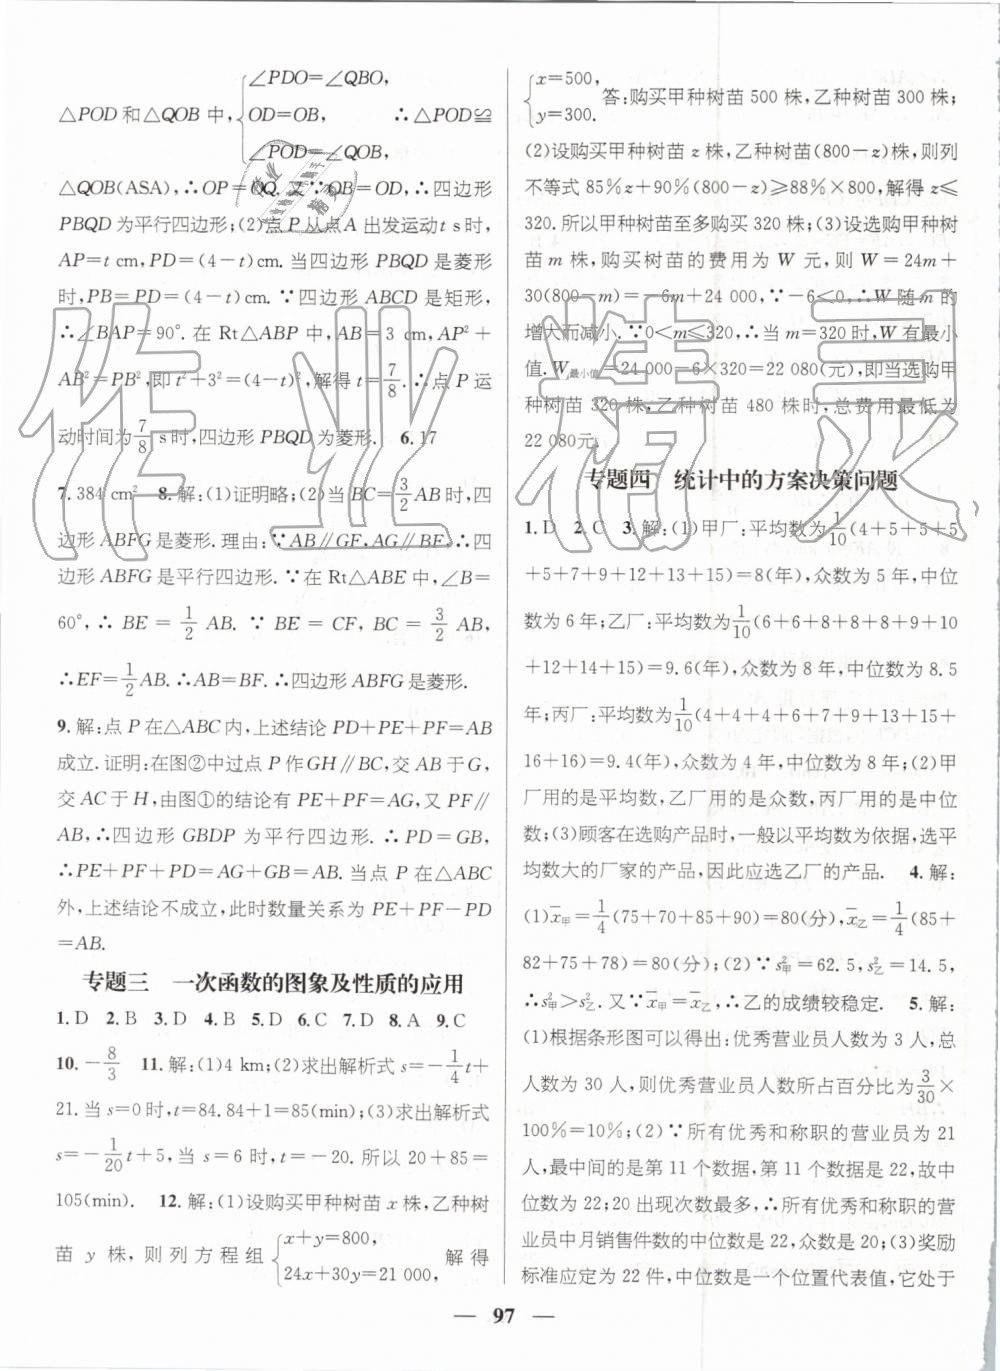 △POD 和△QOB 中,{∠PDO=∠QBO, OD=OB, ∠POD=∠QOB, ∴△POD≌
△QOB(ASA),∴OP=OQ. 又∵OB=OD,∴四边形
PBQD 为平行四边形;(2)点 P 从点 A 出发运动 t s时,
AP=t cm,PD=(4-t)cm. 当四边形 PBQD 是菱形
时,PB=PD=(4-t)cm. ∵四边形 ABCD 是矩形,
∴∠BAP=90°. 在 Rt△ABP 中,AB=3 cm,AP²+
AB²=PB²,即 t²+3²=(4-t)²,解得 t=7/8. ∴点 P 运
动时间为 7/8 s时,四边形 PBQD 为菱形. 6. 17
7. 384 cm² 8. 解:(1)证明略;(2)当 BC=3/2 AB 时,四
边形 ABFG 是菱形. 理由:∵AB∥GF,AG∥BF,∴四
边形 ABFG 是平行四边形. ∵在 Rt△ABE 中,∠B=
60°,∴BE=1/2 AB. ∵BE=CF,BC=3/2 AB,
∴EF=1/2 AB. ∴AB=BF. ∴四边形 ABFG 是菱形.
9. 解:点 P 在△ABC 内,上述结论 PD+PE+PF=AB
成立. 证明:在图②中过点 P 作 GH∥BC,交 AB 于 G,
交 AC 于 H,由图①的结论有 PE+PF=AG,又 PF∥
AB,∴四边形 GBDP 为平行四边形. ∴PD=GB,
∴PE+PF+PD=AG+GB=AB. 当点 P 在△ABC
外,上述结论不成立,此时数量关系为 PE+PF-PD
=AB.
专题三 一次函数的图象及性质的应用
1. D 2. B 3. D 4. B 5. D 6. C 7. D 8. A 9. C
10. -8/3 11. 解:(1)4 km;(2)求出解析式 s=-1/4 t+
21. 当 s=0 时,t=84. 84+1=85(min);(3)求出解析式
s=-1/20 t+5,当 s=6 时,t=-20. 所以 20+85=
105(min). 12. 解:(1)设购买甲种树苗 x 株,乙种树
苗 y 株,则列方程组{x+y=800, 24x+30y=21 000, 解得
{x=500, y=300. 答:购买甲种树苗 500 株,乙种树苗 300 株;
(2)设购买甲种树苗 z 株,乙种树苗(800-z)株,则列
不等式 85%z+90%(800-z)≥88%×800,解得 z≤
320. 所以甲种树苗至多购买 320 株;(3)设选购甲种树
苗 m 株,购买树苗的费用为 W 元,则 W=24m+
30(800-m)=-6m+24 000,∵-6<0,∴W 随 m 的
增大而减小. ∵0<m≤320,∴当 m=320 时,W 有最小
值. W最小值=24 000-6×320=22 080(元),即当选购甲
种树苗 320 株,乙种树苗 480 株时,总费用最低为
22 080元.
专题四 统计中的方案决策问题
1. D 2. C 3. 解:(1)甲厂:平均数为 1/10(4+5+5+5
+5+7+9+12+13+15)=8(年),众数为 5 年,中位
数为 6 年;乙厂:平均数为 1/10(6+6+8+8+8+9+10
+12+14+15)=9.6(年),众数为 8 年,中位数为 8.5
年;丙厂:平均数为 1/10(4+4+4+6+7+9+13+15+
16+16)=9.4(年),众数为 4 年,中位数为 8 年;(2)甲
厂用的是平均数,乙厂用的是众数,丙厂用的是中位
数;(3)顾客在选购产品时,一般以平均数为依据,选平
均数大的厂家的产品,因此应选乙厂的产品. 4. 解:
(1)x̄甲=1/4(75+70+85+90)=80(分),x̄乙=1/4(85+
82+75+78)=80(分);(2)∵s²甲=62.5,s²乙=14.5,
∴s²甲>s²乙. 又∵x̄甲=x̄乙,∴乙的成绩较稳定. 5. 解:
(1)根据条形图可以得出:优秀营业员人数为 3 人,总
人数为 30 人,则优秀营业员人数所占百分比为 3/30×
100%=10%;(2)∵所有优秀和称职的营业员为 21
人,最中间的是第 11 个数据,第 11 个数据是 22,故中
位数为 22;20 出现次数最多,∴所有优秀和称职的营
业员中月销售件数的中位数是 22,众数是 20;(3)奖励
标准应定为 22 件,中位数是一个位置代表值,它处于
— 97 —
作业精灵